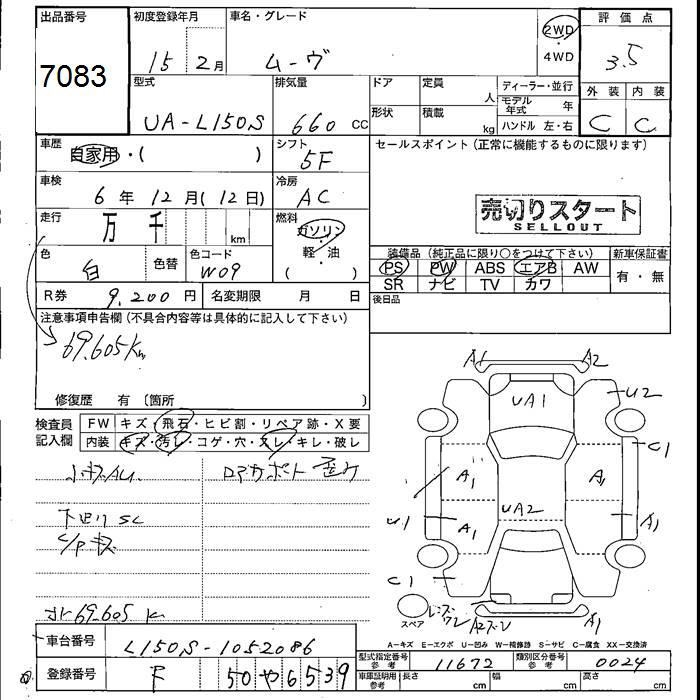 出品番号
7083
初度登録年月
15 2月
車名・グレード
ムーヴ
2WD
・
4WD
評価点
3.5
型式
UA-L150S
排気量
660 CC
ドア
定員
人
ディーラー・並行
モデル年式 年
形状
積載
kg
ハンドル 左・右
外装 内装
C C
車歴
自家用・( )
シフト
5F
セールスポイント(正常に機能するものに限ります)
車検
6年 12月(12日)
冷房
AC
売切りスタート
SELLOUT
走行
万 千
km
燃料
ガソリン
軽・油
( )
色
白
色替
色コード
W09
装備品(純正品に限り○をつけて下さい)
PS PW ABS エアB AW
SR ナビ TV カワ
新車保証書
有・無
R券 9,200円
名変期限 月 日
後日品
注意事項申告欄(不具合内容等は具体的に記入して下さい)
69.605Km
修復歴 有〔箇所 〕
検査員
記入欄
FW キズ・飛石・ヒビ割・リペア跡・X要
内装 キズ・汚レ・コゲ・穴・スレ・キレ・破レ
下回りSC
C/Pキズ
69.605 K
A1 A2
UA1
U2
C1
A1 A1
UA2
U1 A1 A1
C1
スペア
A1
A-キズ E-エクボ U-凹み W-補修跡 S-サビ C-腐食 XX-交換済
車台番号
L150S-1052086
登録番号
50 や 6539
型式指定番号
参考
11672
類別区分番号
参考
0024
車庫証明用
参考
長さ cm
幅 cm
高さ cm